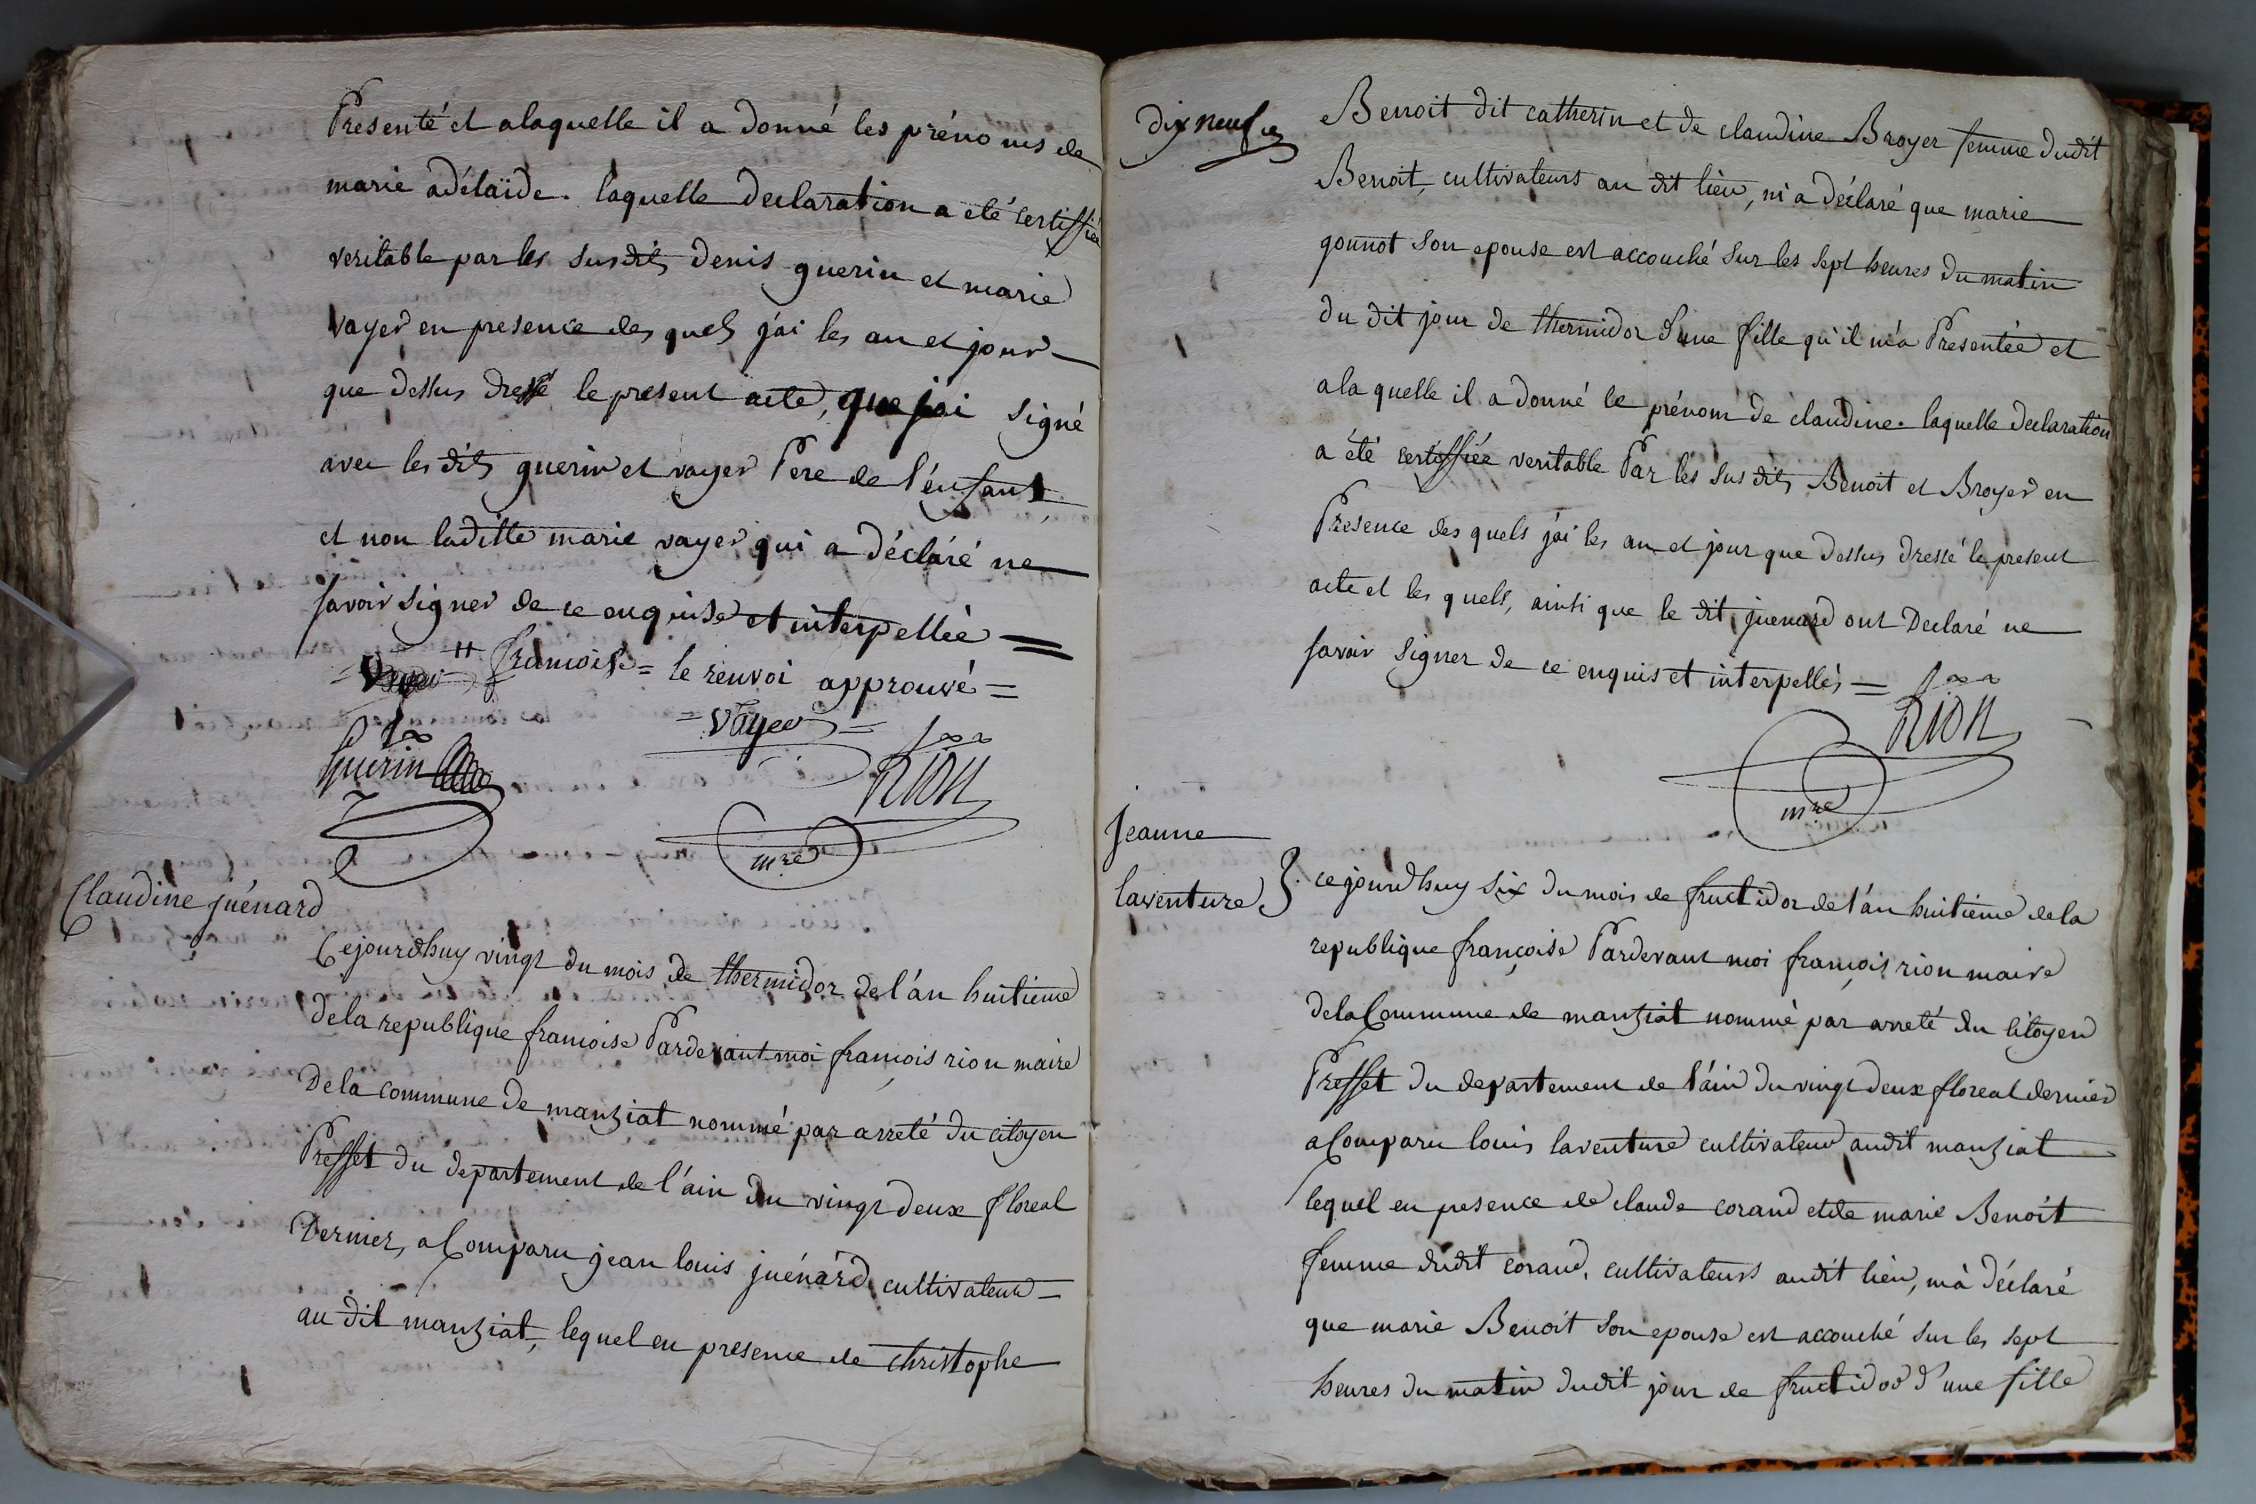 Presenté et alaquelle il a donné les prénoms de
marie adélaïde. laquelle declaration a été certiffiée
veritable par les susdits denis guerin et marie
vayer en presence des quels j'ai les an et jour
que dessus dressé le present acte, que j'ai signé
avec les dits guerin et vayer Pere de l'enfant,
et non laditte marie vayer qui a déclaré ne
savoir signer de ce enquise et interpellée =
= # francoise = le renvoi approuvé =
= vayer =
Guerin
Rion
mre
Claudine juénard
Cejourdhuy vingt du mois de thermidor de l'an huitieme
dela republique francoise Pardevant moi francois rion maire
Dela commune de manziat nommé par arreté du citoyen
Preffet du departement de l'ain du vingt deux floreal
Dernier, a Comparu jean louis juénard cultivateur =
au dit manziat, lequel en presence de christophe
Dix neuf
Benoit dit catherin et de claudine Broyer femme dudit
Benoit, cultivateurs au dit lieu, m'a déclaré que marie
gonnot son epouse est accouché sur les sept heures du matin
du dit jour de thermidor d'une fille qu'il m'a Presentée et
ala quelle il a donné le prénom de claudine. laquelle declaration
a été certiffiée veritable Par les susdits Benoit et Broyer en
Presence des quels j'ai les an et jour que dessus dressé le present
acte et les quels, ainsi que le dit juenard ont Declaré ne
savoir signer de ce enquis et interpellés =
Rion
mre
jeanne
laventure
}. cejourdhuy six du mois de fructidor de l'an huitieme dela
republique françoise Pardevant moi françois rion maire
dela Commune de manziat nommé par arreté du Citoyen
Preffet du departement de l'ain du vingt deux floreal dernier
a Comparu louis laventure cultivateur audit manziat
lequel en presence de claude corand et de marie Benoit
femme dudit corand, cultivateurs audit lieu, m'a déclaré
que marie Benoit son epouse est accouché sur les sept
heures du matin dudit jour de fructidor d'une fille